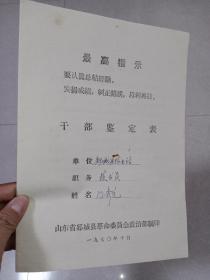 最高指示
要认真总结经验。
发扬成绩，纠正错误，以利再战。
干部鉴定表
单位
职务
姓名
山东省郯城县革命委员会政治部制印
一九七〇年十月